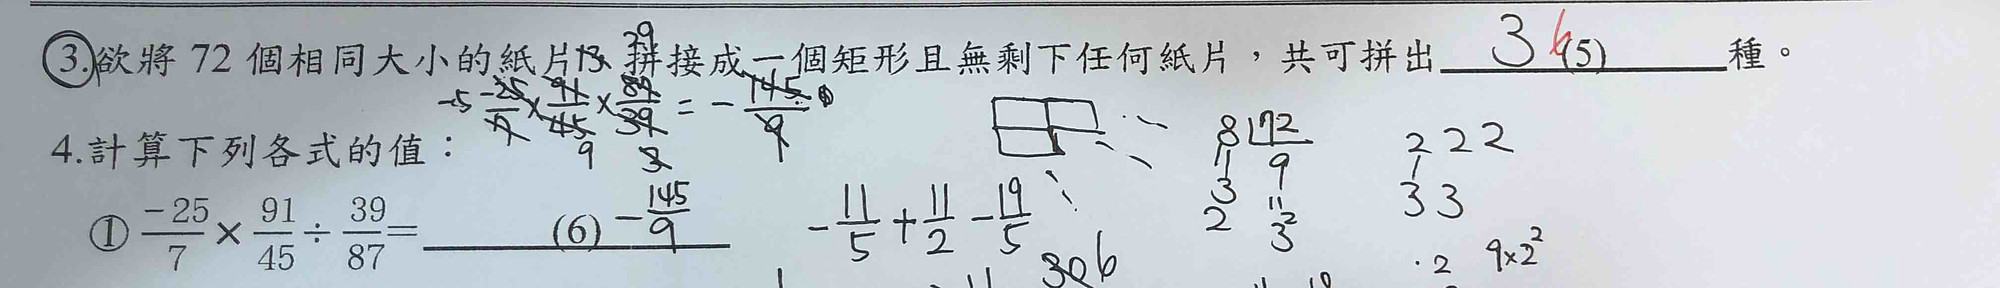 3.欲將 72 個相同大小的紙片 拼接成一個矩形且無剩下任何紙片，共可拼出 3 6 (5) 種。
13 29
-5 -25/7 × 91/45 × 87/39 = - 145/9
9 3
4.計算下列各式的值：
① -25/7 × 91/45 ÷ 39/87 = (6) - 145/9
- 11/5 + 11/2 - 19/5
8 72
9
3 3²
2
2 2 2
3 3
306
· 2 9×2²